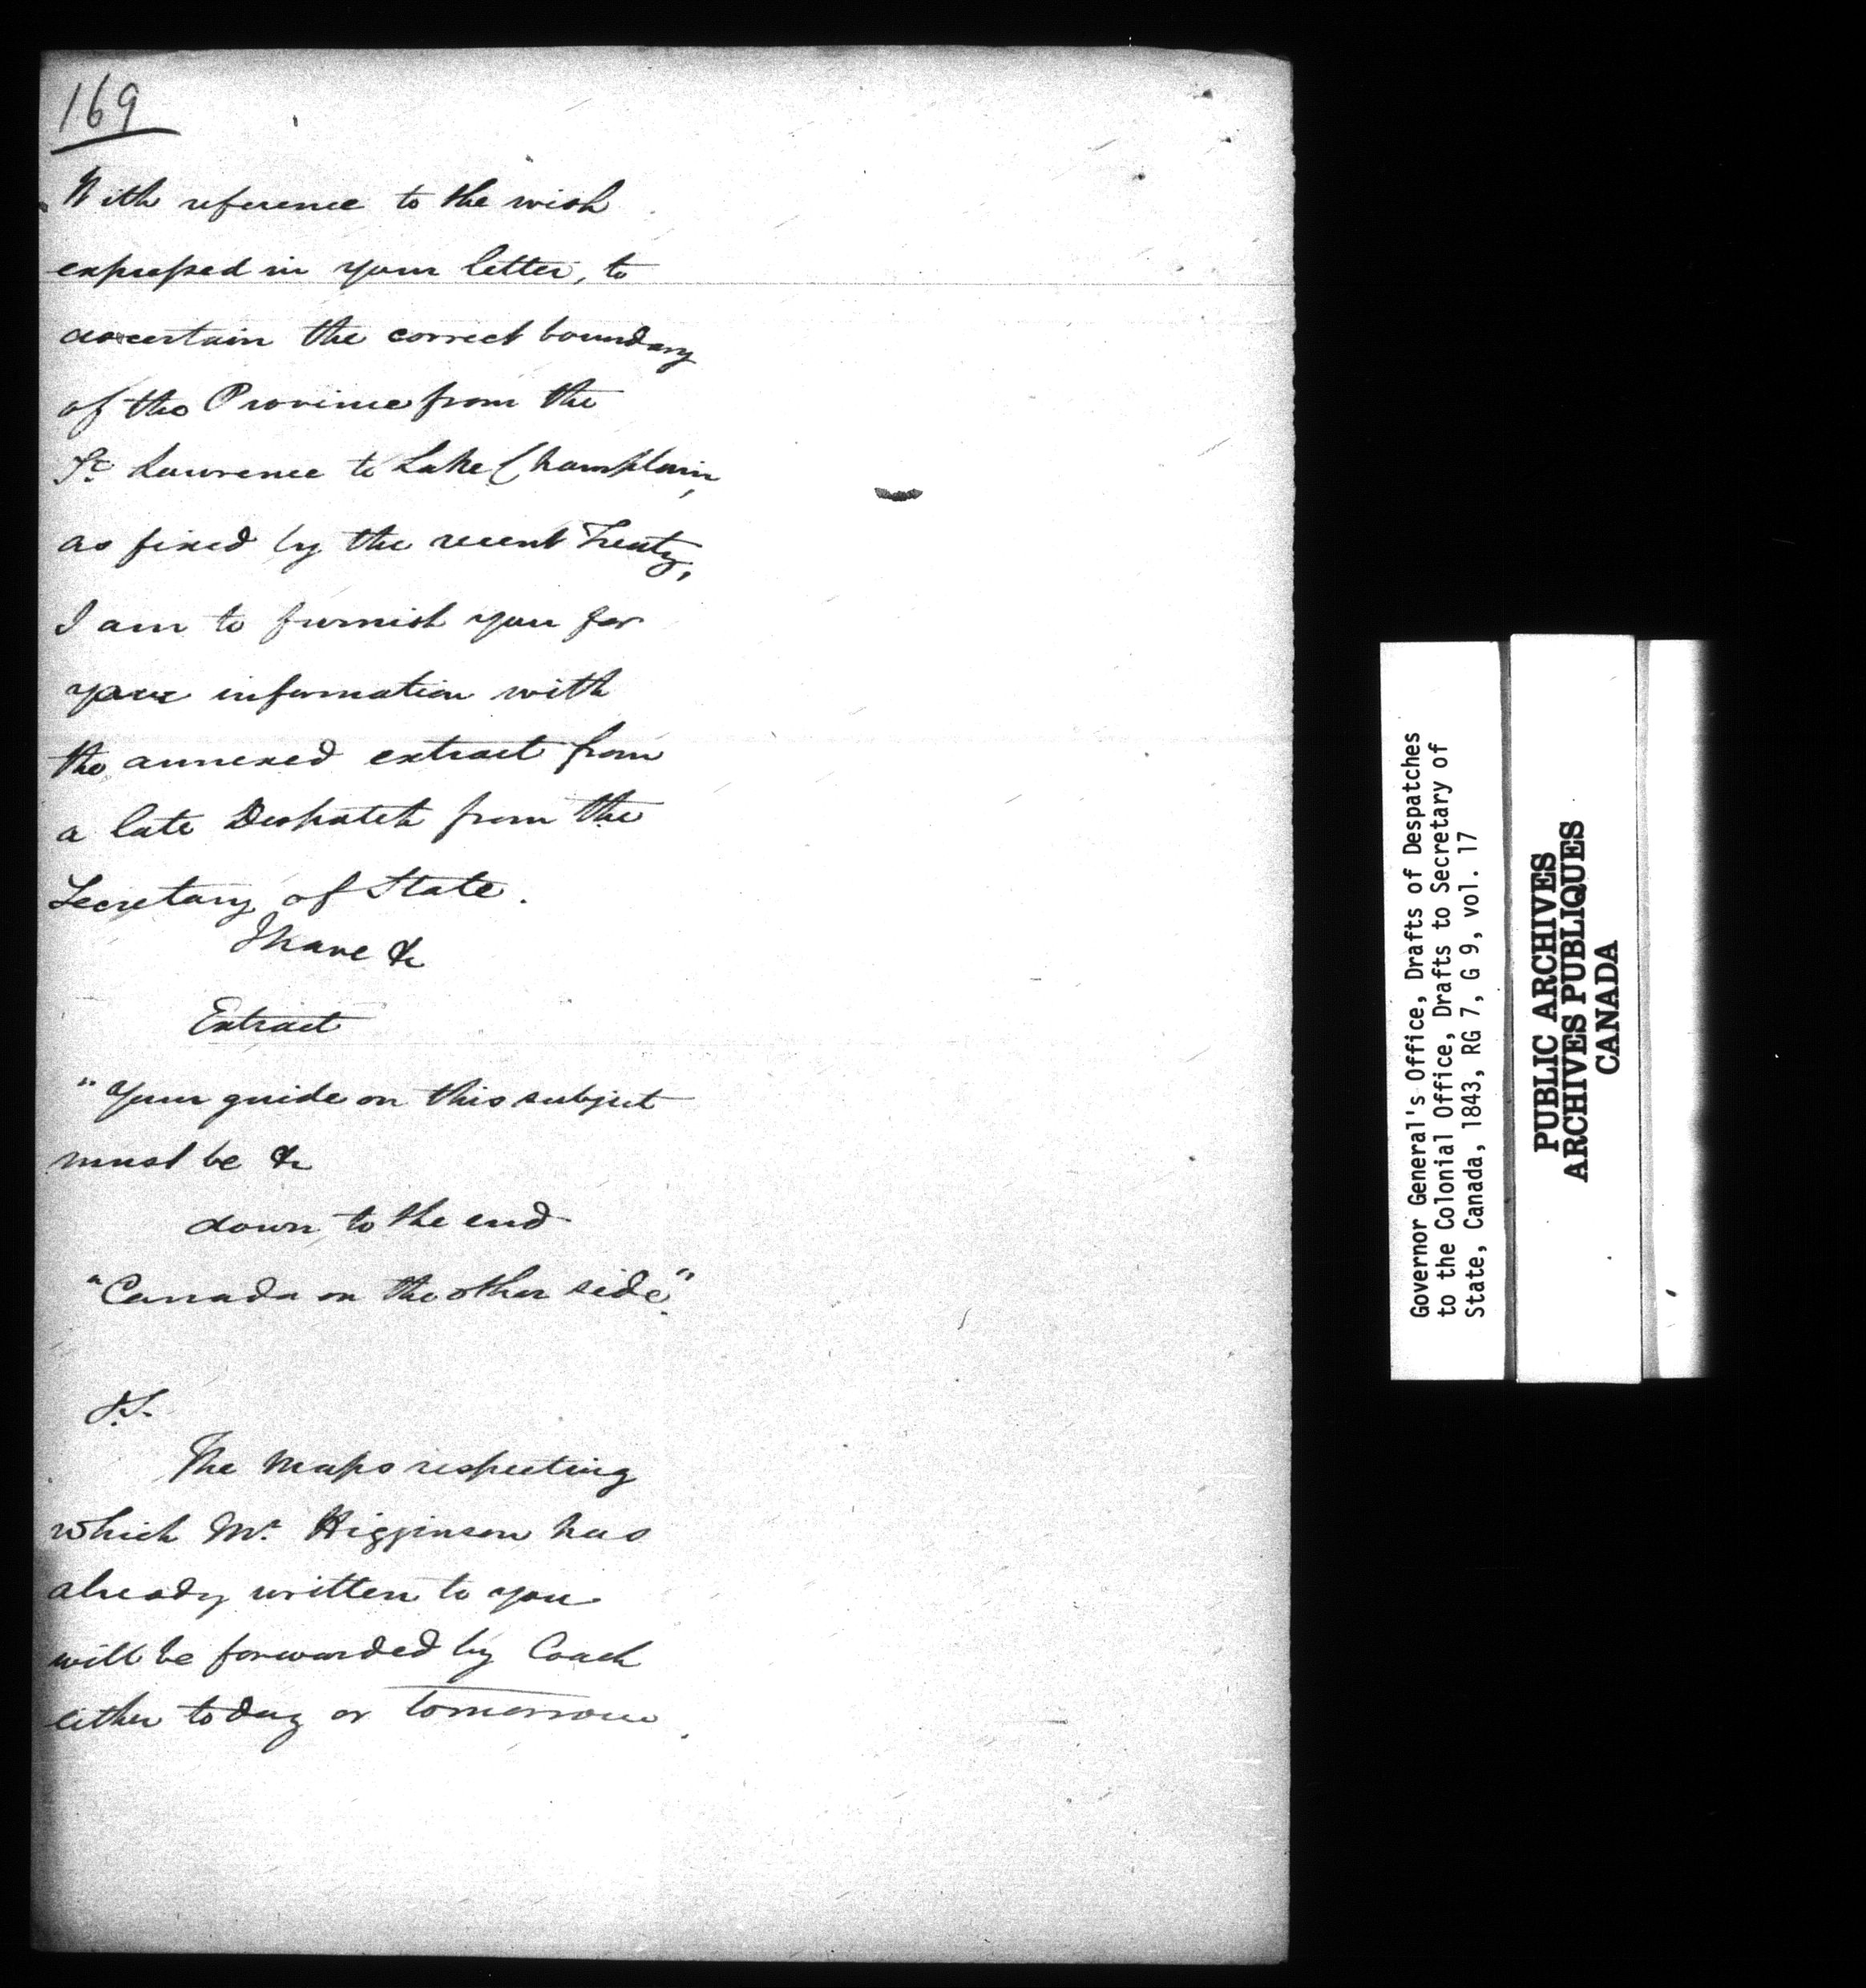 169
With reference to the wish
expressed in your letter, to
ascertain the correct boundary
of the Province from the
St. Lawrence to Lake Champlain,
as fixed by the recent Treaty,
I am to furnish you for
your information with
the annexed extract from
a late Despatch from the
Secretary of State.
I have &c
Extract
"Your guide on this subject
must be &c
down to the end
"Canada on the other side".
P.S.
The Maps respecting
which Mr. Higginson has
already written to you
will be forwarded by Coach
either today or tomorrow.
Governor General's Office, Drafts of Despatches
to the Colonial Office, Drafts to Secretary of
State, Canada, 1843, RG 7, G 9, vol. 17
PUBLIC ARCHIVES
ARCHIVES PUBLIQUES
CANADA